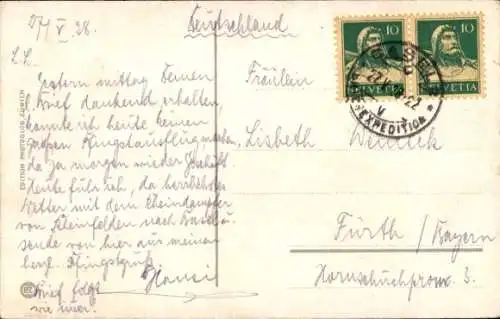 27/V 28.
L. L.
Gestern mittag Deinen
Brief dankend erhalten,
konnte ich heute keinen
großen Pfingstausflug machen,
da ja morgen wieder Geschäft.
Heute fuhr ich, da herrliches
Wetter mit dem Rheindampfer
von Rheinfelden nach Basel u.
sende von hier aus meinen
herzl. Pfingstgruß
Hansi
Brief folgt
wie immer.
EDITION PHOTOGLOB, ZÜRICH
PZ
Deutschland
Fräulein
Lisbeth
Fürth / Bayern
Hornschuchprom. 3.
10 10
HELVETIA HELVETIA
BASEL
27.V. 22
BRIEFEXPEDITION